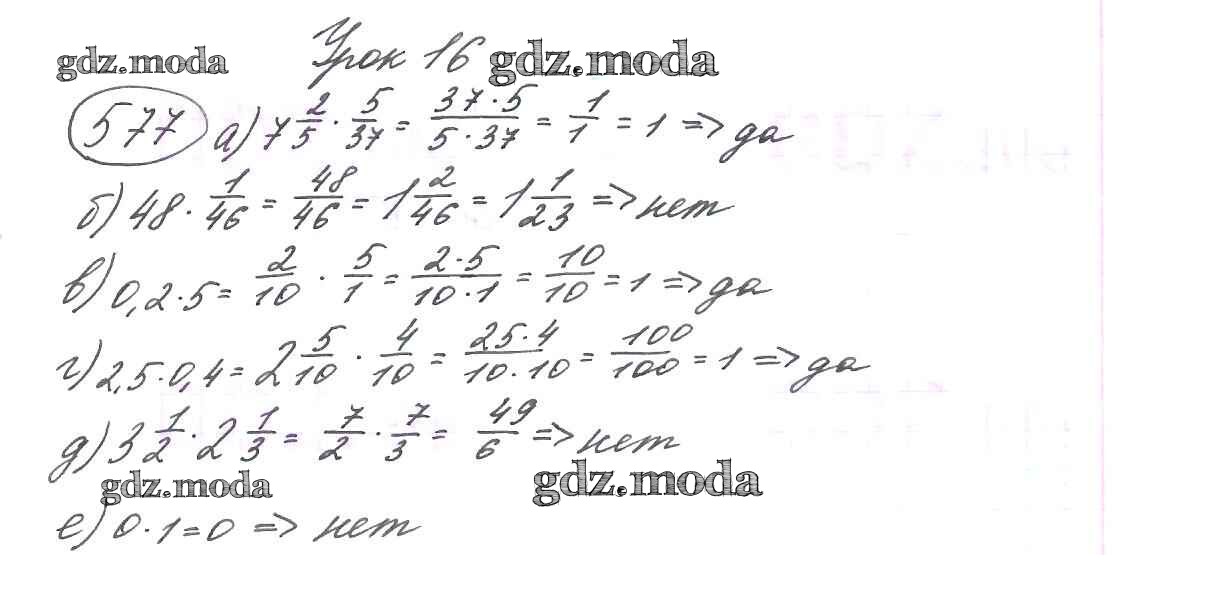 gdz.moda Урок 16 gdz.moda
577 а) 7 2/5 · 5/37 = 37·5/5·37 = 1/1 = 1 => да
б) 48 · 1/46 = 48/46 = 1 2/46 = 1 1/23 => нет
в) 0,2·5 = 2/10 · 5/1 = 2·5/10·1 = 10/10 = 1 => да
г) 2,5·0,4 = 2 5/10 · 4/10 = 25·4/10·10 = 100/100 = 1 => да
д) 3 1/2 · 2 1/3 = 7/2 · 7/3 = 49/6 => нет
gdz.moda gdz.moda
е) 0·1=0 => нет